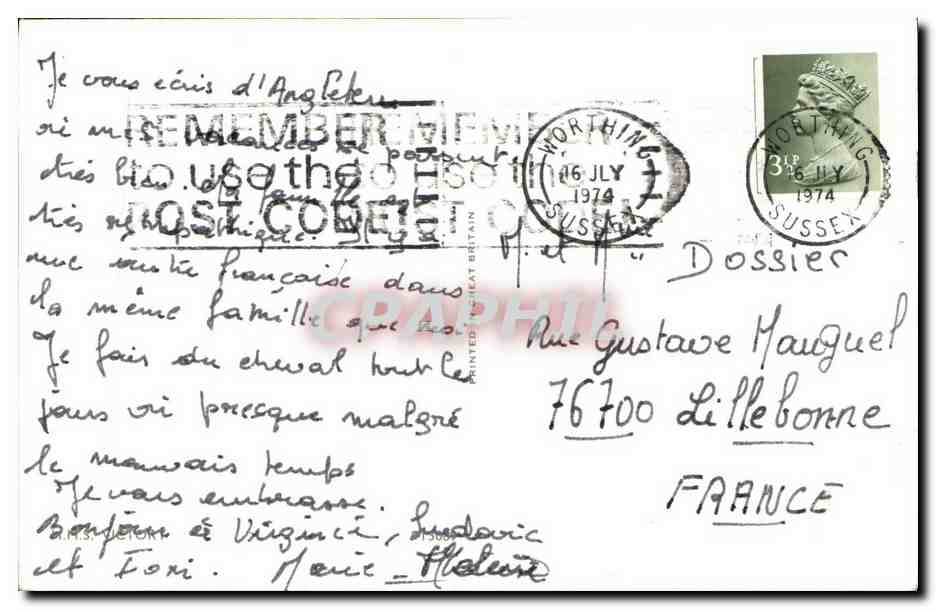 Je vous écris d'Angleterre
où mes vacances se passent
très bien. la famille est
très sympathique. Il y a
une autre française dans
la même famille que moi
Je fais du cheval tout les
jours où presque malgré
le mauvais temps
Je vous embrasse.
Bonjour à Virginie, Ludovic
et Fori. Marie-
REMEMBER REMEMBER
to use the to use the
POST CODE POST CODE
WORTHING
16 JLY
1974
SUSSEX
3½P
WORTHING
16 JLY
1974
SUSSEX
M. et Mme Dossier
Rue Gustave Mauguel
76700 Lillebonne
FRANCE
PRINTED IN GREAT BRITAIN
H.M.S. VICTORY
CPAPHIL